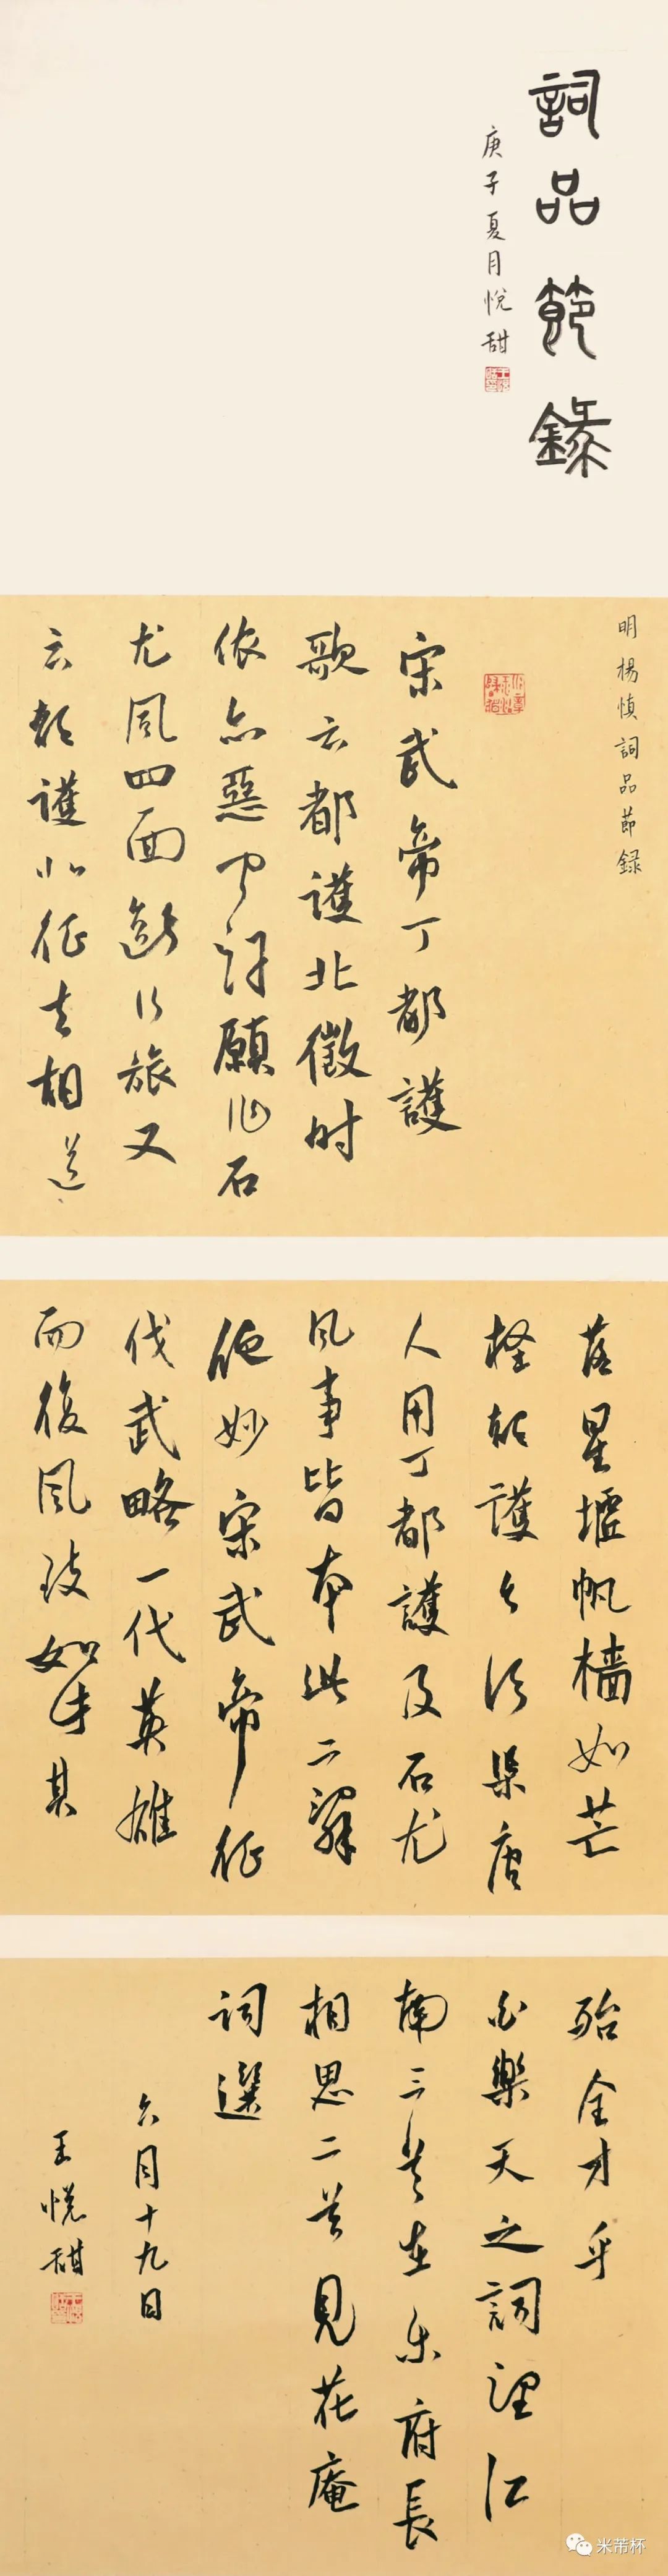 詞品節錄
庚子夏月悦甜
明楊慎詞品節録
宋武帝丁都護
歌云都護北徵时
侬亦惡闻許願作石
尤風四面斷行旅又
云都護北征去相送
落星墟帆檣如芒
檉都護今何渠唐
人用丁都護及石尤
風事皆本此二辭
絕妙宋武帝征
伐武略一代英雄
而復風致如此其
殆全才乎
白樂天之詞望江
南三首在乐府長
相思二首見花庵
词選
六月十九日
王悦甜
米芾杯